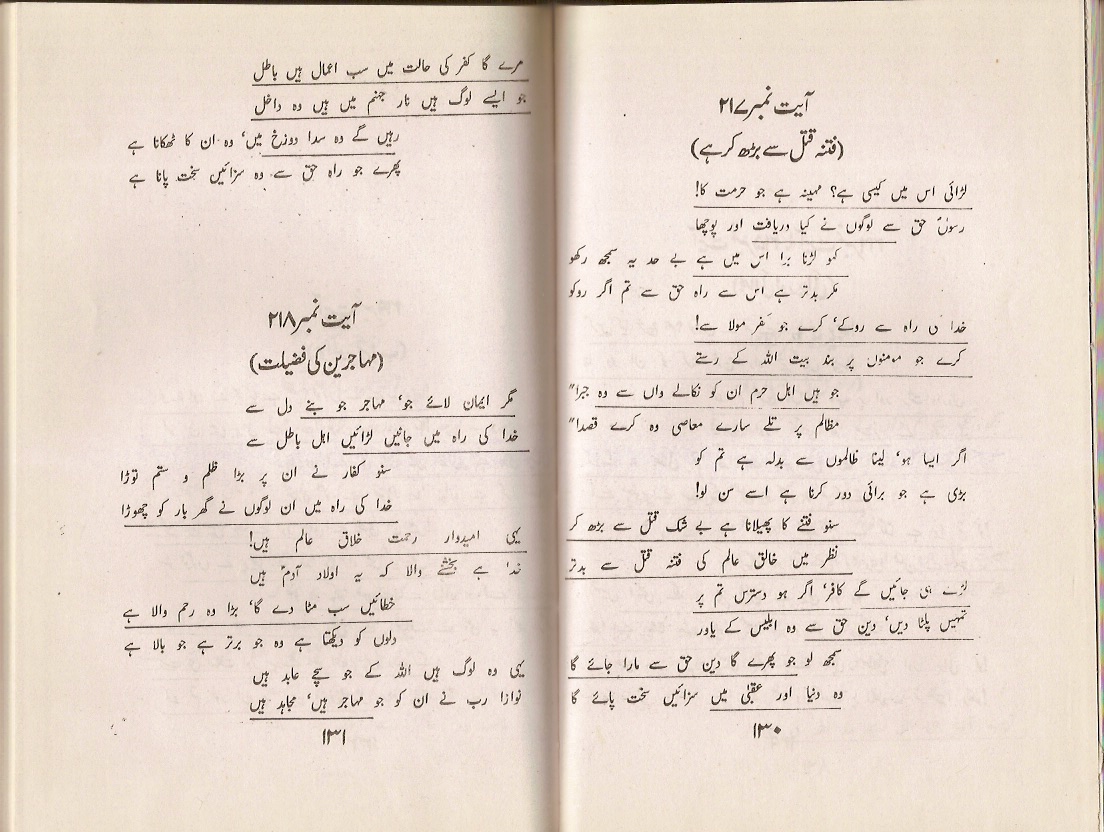 آیت نمبر ۲۱۷
(فتنہ قتل سے بڑھ کر ہے)
لڑائی اس میں کیسی ہے؟ مہینہ ہے جو حرمت کا!
رسولؐ حق سے لوگوں نے کیا دریافت اور پوچھا
کہو لڑنا برا اس میں ہے بے حد یہ سمجھ رکھو
مگر بدتر ہے اس سے راہ حق سے تم اگر روکو
خدا کی راہ سے روکے، کرے جو کفر مولا سے!
کرے جو مومنوں پر بند بیت اللہ کے رستے
جو ہیں اہل حرم ان کو نکالے واں سے وہ جبرا"
مظالم پر تلے سارے معاصی وہ کرے قصدا"
اگر ایسا ہو، لینا ظالموں سے بدلہ ہے تم کو
بڑی ہے جو برائی دور کرنا ہے اسے سن لو!
سنو فتنے کا پھیلانا ہے بے شک قتل سے بڑھ کر
نظر میں خالق عالم کی فتنہ قتل سے بدتر
لڑے ہی جائیں گے کافر، اگر ہو دسترس تم پر
تمہیں پلٹا دیں، دین حق سے وہ ابلیس کے یاور
سمجھ لو جو پھرے گا دین حق سے مارا جائے گا
وہ دنیا اور عقبیٰ میں سزائیں سخت پائے گا
۱۳۰
مرے گا کفر کی حالت میں سب اعمال ہیں باطل
جو ایسے لوگ ہیں نار جہنم میں ہیں وہ داخل
رہیں گے وہ سدا دوزخ میں، وہ ان کا ٹھکانا ہے
پھرے جو راہ حق سے وہ سزائیں سخت پاتا ہے
آیت نمبر ۲۱۸
(مہاجرین کی فضیلت)
مگر ایمان لائے جو، مہاجر جو بنے دل سے
خدا کی راہ میں جانیں لڑائیں اہل باطل سے
سنو کفار نے ان پر بڑا ظلم و ستم توڑا
خدا کی راہ میں ان لوگوں نے گھر بار کو چھوڑا
یہی امیدوار رحمت خلاق عالم ہیں!
خدا ہے بخشنے والا کہ یہ اولاد آدمؑ ہیں
خطائیں سب مٹا دے گا، بڑا وہ رحم والا ہے
دلوں کو دیکھتا ہے وہ جو برتر ہے جو بالا ہے
یہی وہ لوگ ہیں اللہ کے جو سچے عابد ہیں
نوازا رب نے ان کو جو مہاجر ہیں، مجاہد ہیں
۱۳۱